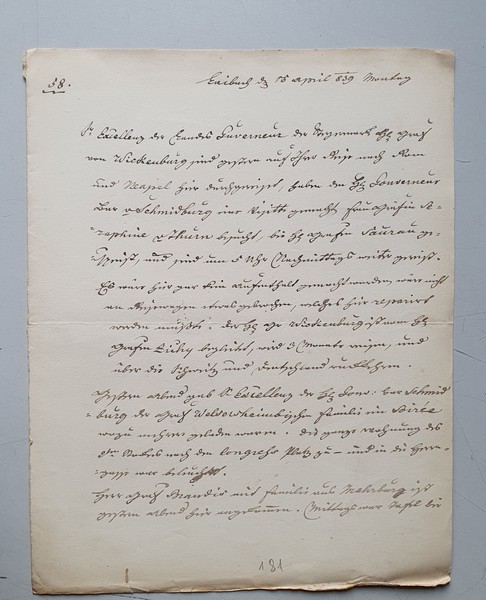 58.
Laibach d 15 april 839 Montag
Sr Excellenz der Landes Gouverneur der Steyermark H Graf
von Wickenburg sind gestern auf Ihrer Reise nach Rom
und Neapel hier durchgereist, haben dem H Gouverneur
Bar v Schmidburg eine Visitte gemacht, Frau Gräfin
v Thurn besucht, bei H Grafen Saurau ge-
speist, und sind um 5 Uhr Nachmittags weiter gereist.
Es wäre hier gar kein Aufenthalt gemacht worden, wäre nicht
am Reisewagen etwas gebrochen, welches hier repariert
werden mußte. Der H Gr Wickenburg ist vom H
Grafen Zichy begleitet, wird 3 Monate reisen, und
über die Schweitz und Deutschland rückkehren.
Gestern abend gab Sr Excellenz der H Gouv: Bar Schmid
burg der Graf Familie ein
wozu mehrere geladen waren. Die ganze Wohnung des
nach dem Congress Platz zu – und in die Herrn-
gasse war beleuchtet.
Herr Graf Brandis mit Familie aus Mahrburg ist
gestern abend hier angekommen. Mittags war Tafel bei
181